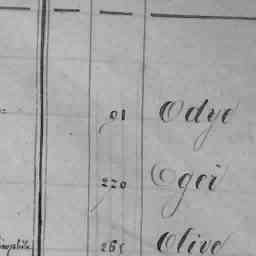 91 Odye
220 Ogei
265 Olive